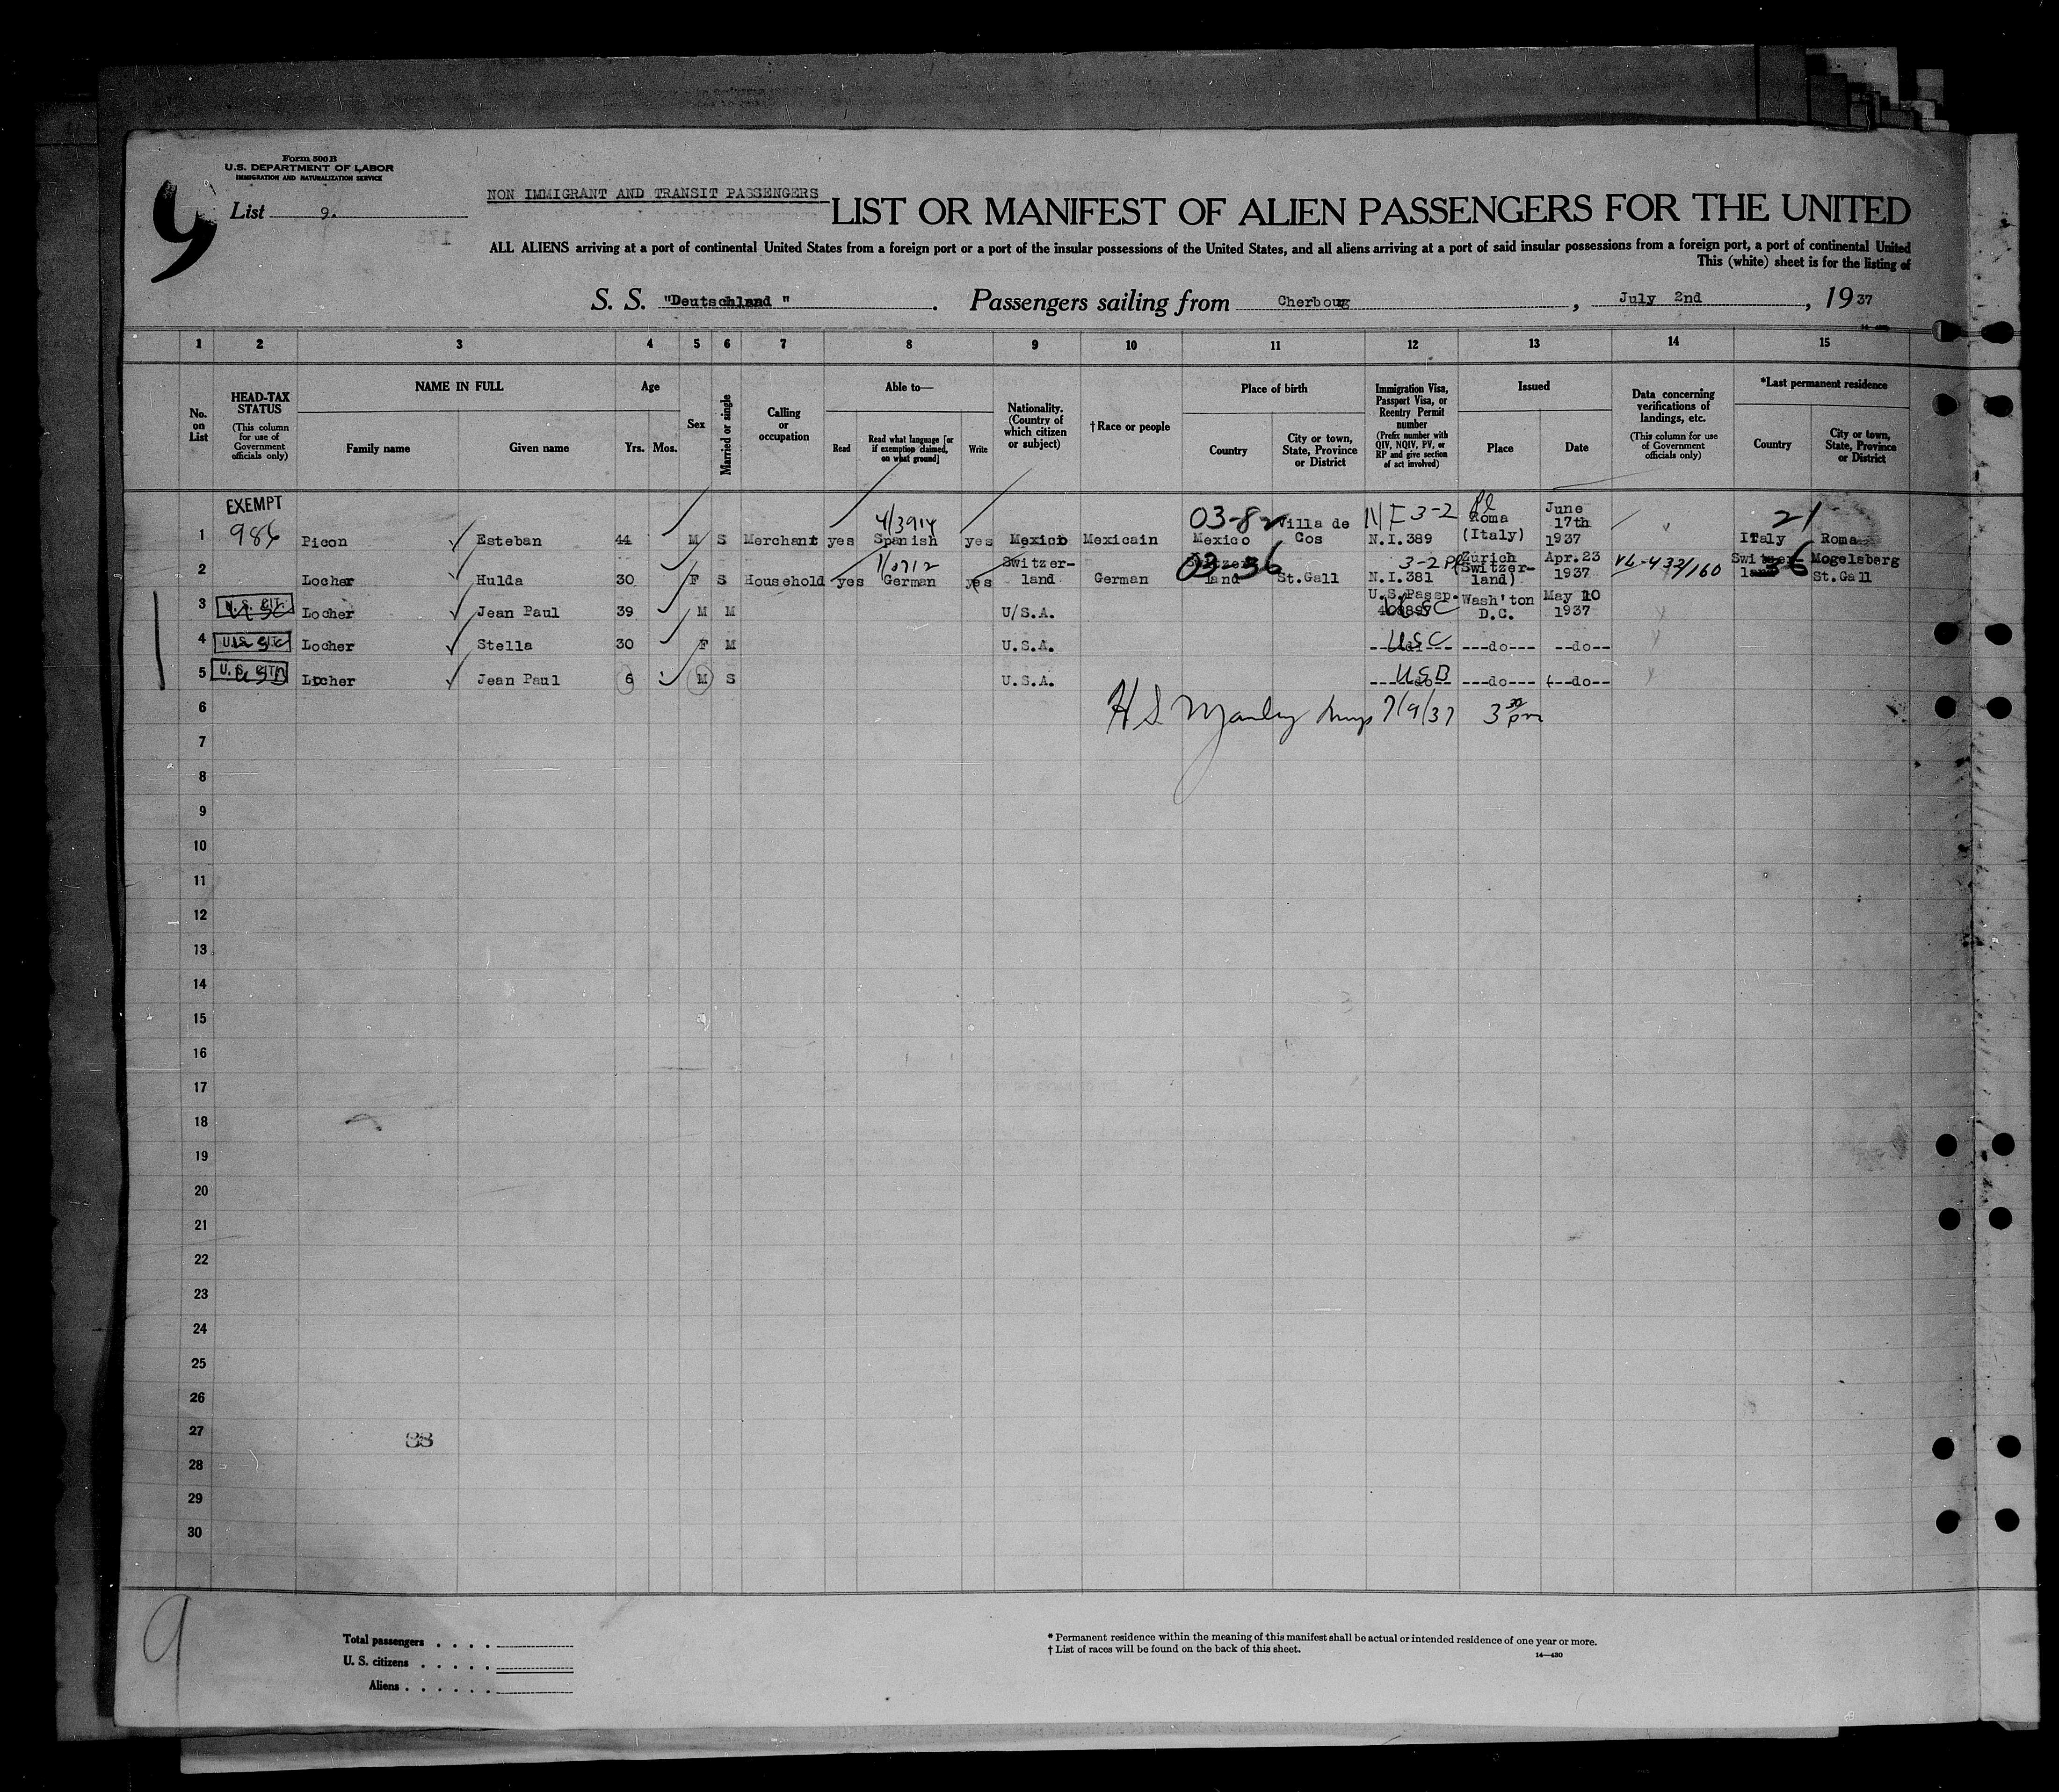 Form 500 B
U.S. DEPARTMENT OF LABOR
IMMIGRATION AND NATURALIZATION SERVICE
9
List 9.
NON IMMIGRANT AND TRANSIT PASSENGERS
LIST OR MANIFEST OF ALIEN PASSENGERS FOR THE UNITED
ALL ALIENS arriving at a port of continental United States from a foreign port or a port of the insular possessions of the United States, and all aliens arriving at a port of said insular possessions from a foreign port, a port of continental United
This (white) sheet is for the listing of
S. S. "Deutschland ". Passengers sailing from Cherboug, July 2nd, 1937
1 2 3 4 5 6 7 8 9 10 11 12 13 14 15
No. on List
HEAD-TAX STATUS (This column for use of Government officials only)
NAME IN FULL
Family name
Given name
Age
Yrs. Mos.
Sex
Married or single
Calling or occupation
Able to—
Read
Read what language [or if exemption claimed, on what ground]
Write
Nationality. (Country of which citizen or subject)
†Race or people
Place of birth
Country
City or town, State, Province or District
Immigration Visa, Passport Visa, or Reentry Permit number (Prefix number with QIV, NQIV, PV, or RP and give section of act involved)
Issued
Place
Date
Data concerning verifications of landings, etc. (This column for use of Government officials only)
*Last permanent residence
Country
City or town, State, Province or District
EXEMPT
1 986 Picon Esteban 44 M S Merchant yes 4/3914 Spanish yes Mexico Mexicain 03-82 Mexico Villa de Cos 3-2 N.I.389 Roma (Italy) June 17th 1937 21 Italy Roma
2 Locher Hulda 30 F S Household yes German yes Switzer-land German 03-36 Switzer-land St.Gall 3-2 N.I.381 Zurich (Switzer-land) Apr.23 1937 Switzer-land 36 Mogelsberg St.Gall
3 U.S. CIT. Locher Jean Paul 39 M M U/S.A. U.S.Passp. USC Wash'ton D.C. May 10 1937
4 U.S. Locher Stella 30 F M U.S.A. USC ---do--- --do--
5 U.S. Locher Jean Paul 6 M S U.S.A. USB ---do--- --do--
6 7/9/37 3 30 pm
7
8
9
10
11
12
13
14
15
16
17
18
19
20
21
22
23
24
25
26
27
88
28
29
30
9
Total passengers . . . .
U. S. citizens . . . . .
Aliens . . . . . .
* Permanent residence within the meaning of this manifest shall be actual or intended residence of one year or more.
† List of races will be found on the back of this sheet.
14—430